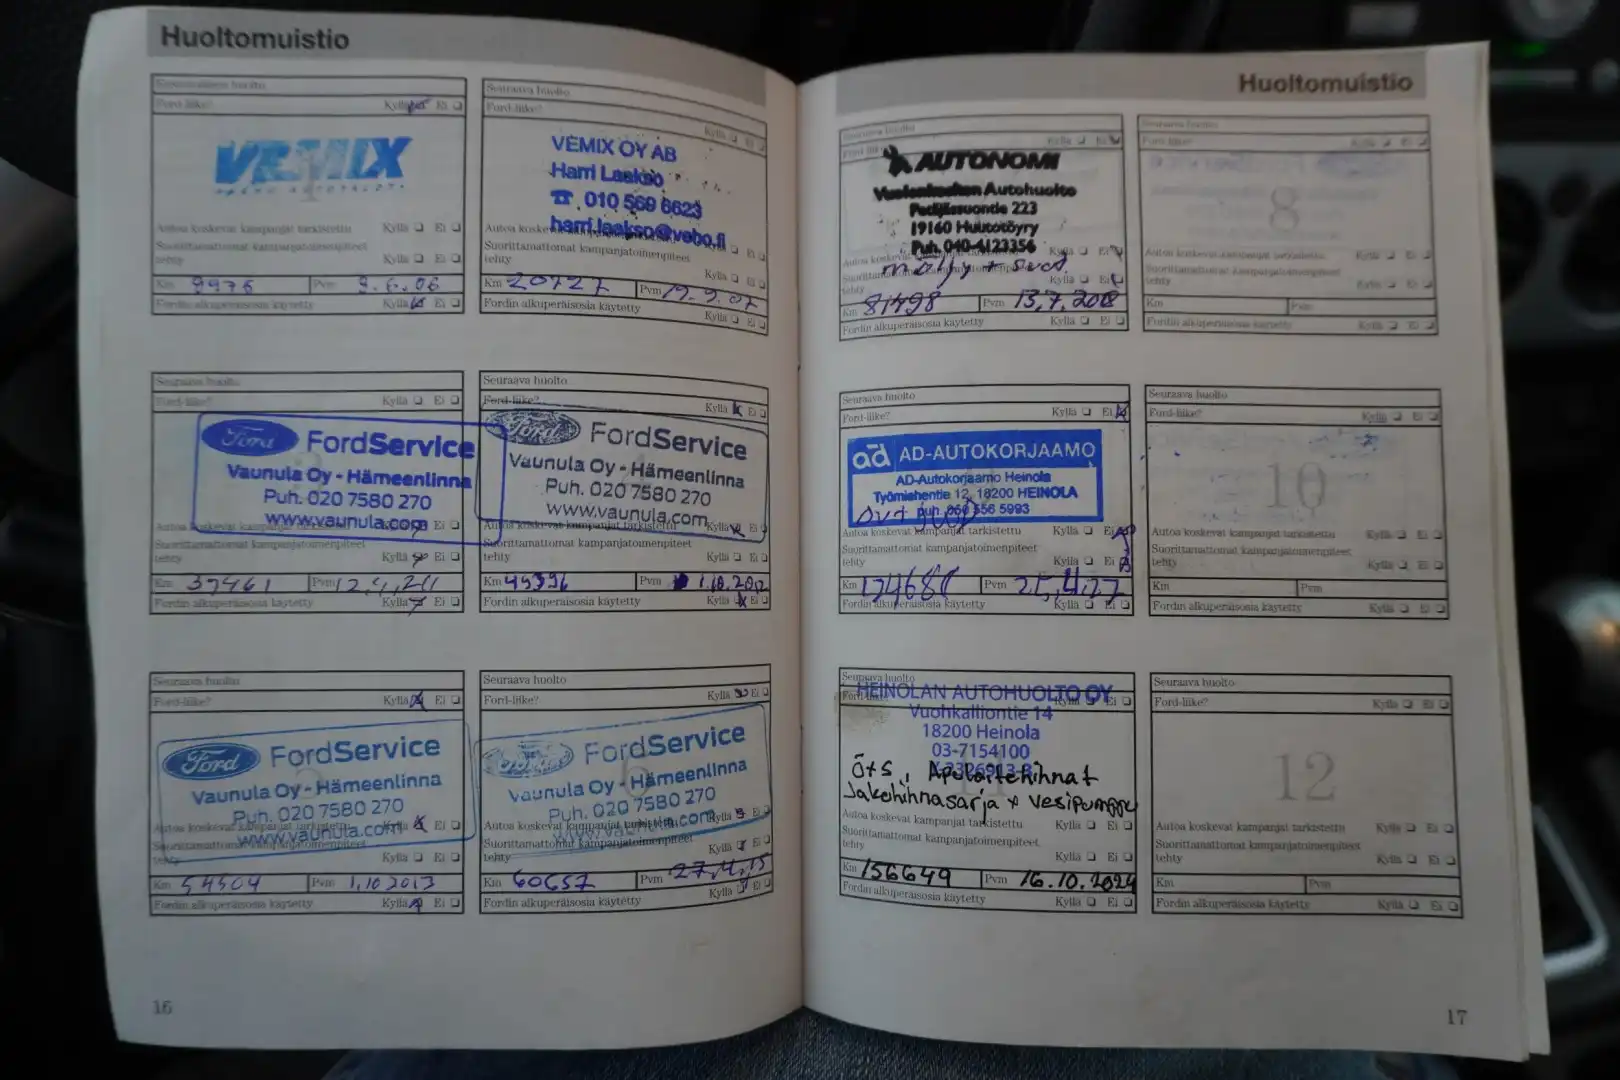 Huoltomuistio
Ford-liike? Kyllä Ei
VEMIX
Autoa koskevat kampanjat tarkistettu Kyllä Ei
Suorittamattomat kampanjatoimenpiteet
tehty Kyllä Ei
Km 9976 Pvm 9.6.06
Fordin alkuperäisosia käytetty Kyllä Ei
Seuraava huolto
Ford-liike? Kyllä Ei
VEMIX OY AB
Harri Laakso
☎ 010 569 8623
harri.laakso@vebo.fi
Autoa
Suorittamattomat kampanjatoimenpiteet
tehty Kyllä Ei
Km 20727 Pvm 19.9.07
Fordin alkuperäisosia käytetty Kyllä Ei
Seuraava huolto
Ford-liike? Kyllä Ei
Ford FordService
Vaunula Oy - Hämeenlinna
Puh. 020 7580 270
www.vaunula.com
Autoa koskevat kampanjat tarkistettu Ei
Suorittamattomat kampanjatoimenpiteet
tehty Kyllä Ei
Km 37461 Pvm 12.4.211
Fordin alkuperäisosia käytetty Kyllä Ei
Seuraava huolto
Ford-liike? Kyllä Ei
4
Ford FordService
Vaunula Oy - Hämeenlinna
Puh. 020 7580 270
www.vaunula.com
Autoa koskevat kampanjat tarkistettu Kyllä Ei
Suorittamattomat kampanjatoimenpiteet
tehty Kyllä Ei
Km 45396 Pvm 1.10.2012
Fordin alkuperäisosia käytetty Kyllä Ei
Seuraava huolto
Ford-liike? Kyllä Ei
5
Ford FordService
Vaunula Oy - Hämeenlinna
Puh. 020 7580 270
www.vaunula.com
Autoa koskevat kampanjat tarkistettu Kyllä Ei
Suorittamattomat kampanjatoimenpiteet
tehty Kyllä Ei
Km 54504 Pvm 1.10 2013
Fordin alkuperäisosia käytetty Kyllä Ei
Seuraava huolto
Ford-liike? Kyllä Ei
6
Ford FordService
Vaunula Oy - Hämeenlinna
Puh. 020 7580 270
www.vaunula.com
Autoa koskevat kampanjat tarkistettu Kyllä Ei
Suorittamattomat kampanjatoimenpiteet
tehty Kyllä Ei
Km 60657 Pvm 27.4.15
Fordin alkuperäisosia käytetty Kyllä Ei
16
Huoltomuistio
Seuraava huolto
Kyllä Ei
AUTONOMI
Vuolenkosken Autohuolto
Pedijässuontie 223
19160 Huutotöyry
Puh. 040-4123356
Autoa koskevat Kyllä Ei
Kyllä Ei
tehty
Km 81498 Pvm 13.7.2018
Fordin alkuperäisosia käytetty Kyllä Ei
Seuraava huolto
Ford-liike? Kyllä Ei
8
Autoa koskevat kampanjat tarkistettu Kyllä Ei
Suorittamattomat kampanjatoimenpiteet
tehty Kyllä Ei
Km Pvm
Fordin alkuperäisosia käytetty Kyllä Ei
Seuraava huolto
Ford-liike? Kyllä Ei
ad AD-AUTOKORJAAMO
AD-Autokorjaamo Heinola
Työmiehentie 12, 18200 HEINOLA
puh. 050 556 5993
Autoa koskevat kampanjat tarkistettu Kyllä Ei
Suorittamattomat kampanjatoimenpiteet
tehty Kyllä Ei
Km Pvm
Fordin alkuperäisosia käytetty Kyllä Ei
Seuraava huolto
Ford-liike? Kyllä Ei
10
Autoa koskevat kampanjat tarkistettu Kyllä Ei
Suorittamattomat kampanjatoimenpiteet
tehty Kyllä Ei
Km Pvm
Fordin alkuperäisosia käytetty Kyllä Ei
Seuraava huolto
HEINOLAN AUTOHUOLTO OY
Vuohkalliontie 14
18200 Heinola
03-7154100
Öts, Apulaitehihnat
Jakohihnasarja + Vesipumppu
Autoa koskevat kampanjat tarkistettu Kyllä Ei
Suorittamattomat kampanjatoimenpiteet
tehty Kyllä Ei
Km 156649 Pvm 16.10.2024
Fordin alkuperäisosia käytetty Kyllä Ei
Seuraava huolto
Ford-liike? Kyllä Ei
12
Autoa koskevat kampanjat tarkistettu Kyllä Ei
Suorittamattomat kampanjatoimenpiteet
tehty Kyllä Ei
Km Pvm
Fordin alkuperäisosia käytetty Kyllä Ei
17